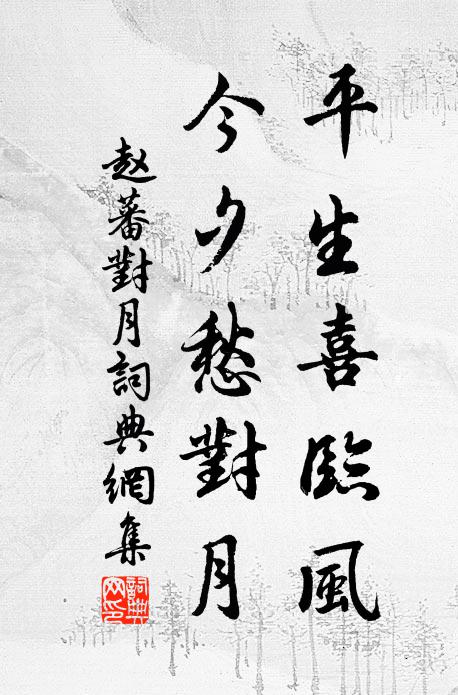 平生喜臨風
今夕愁對月
赵蕃對月詞典網集
詞典网印